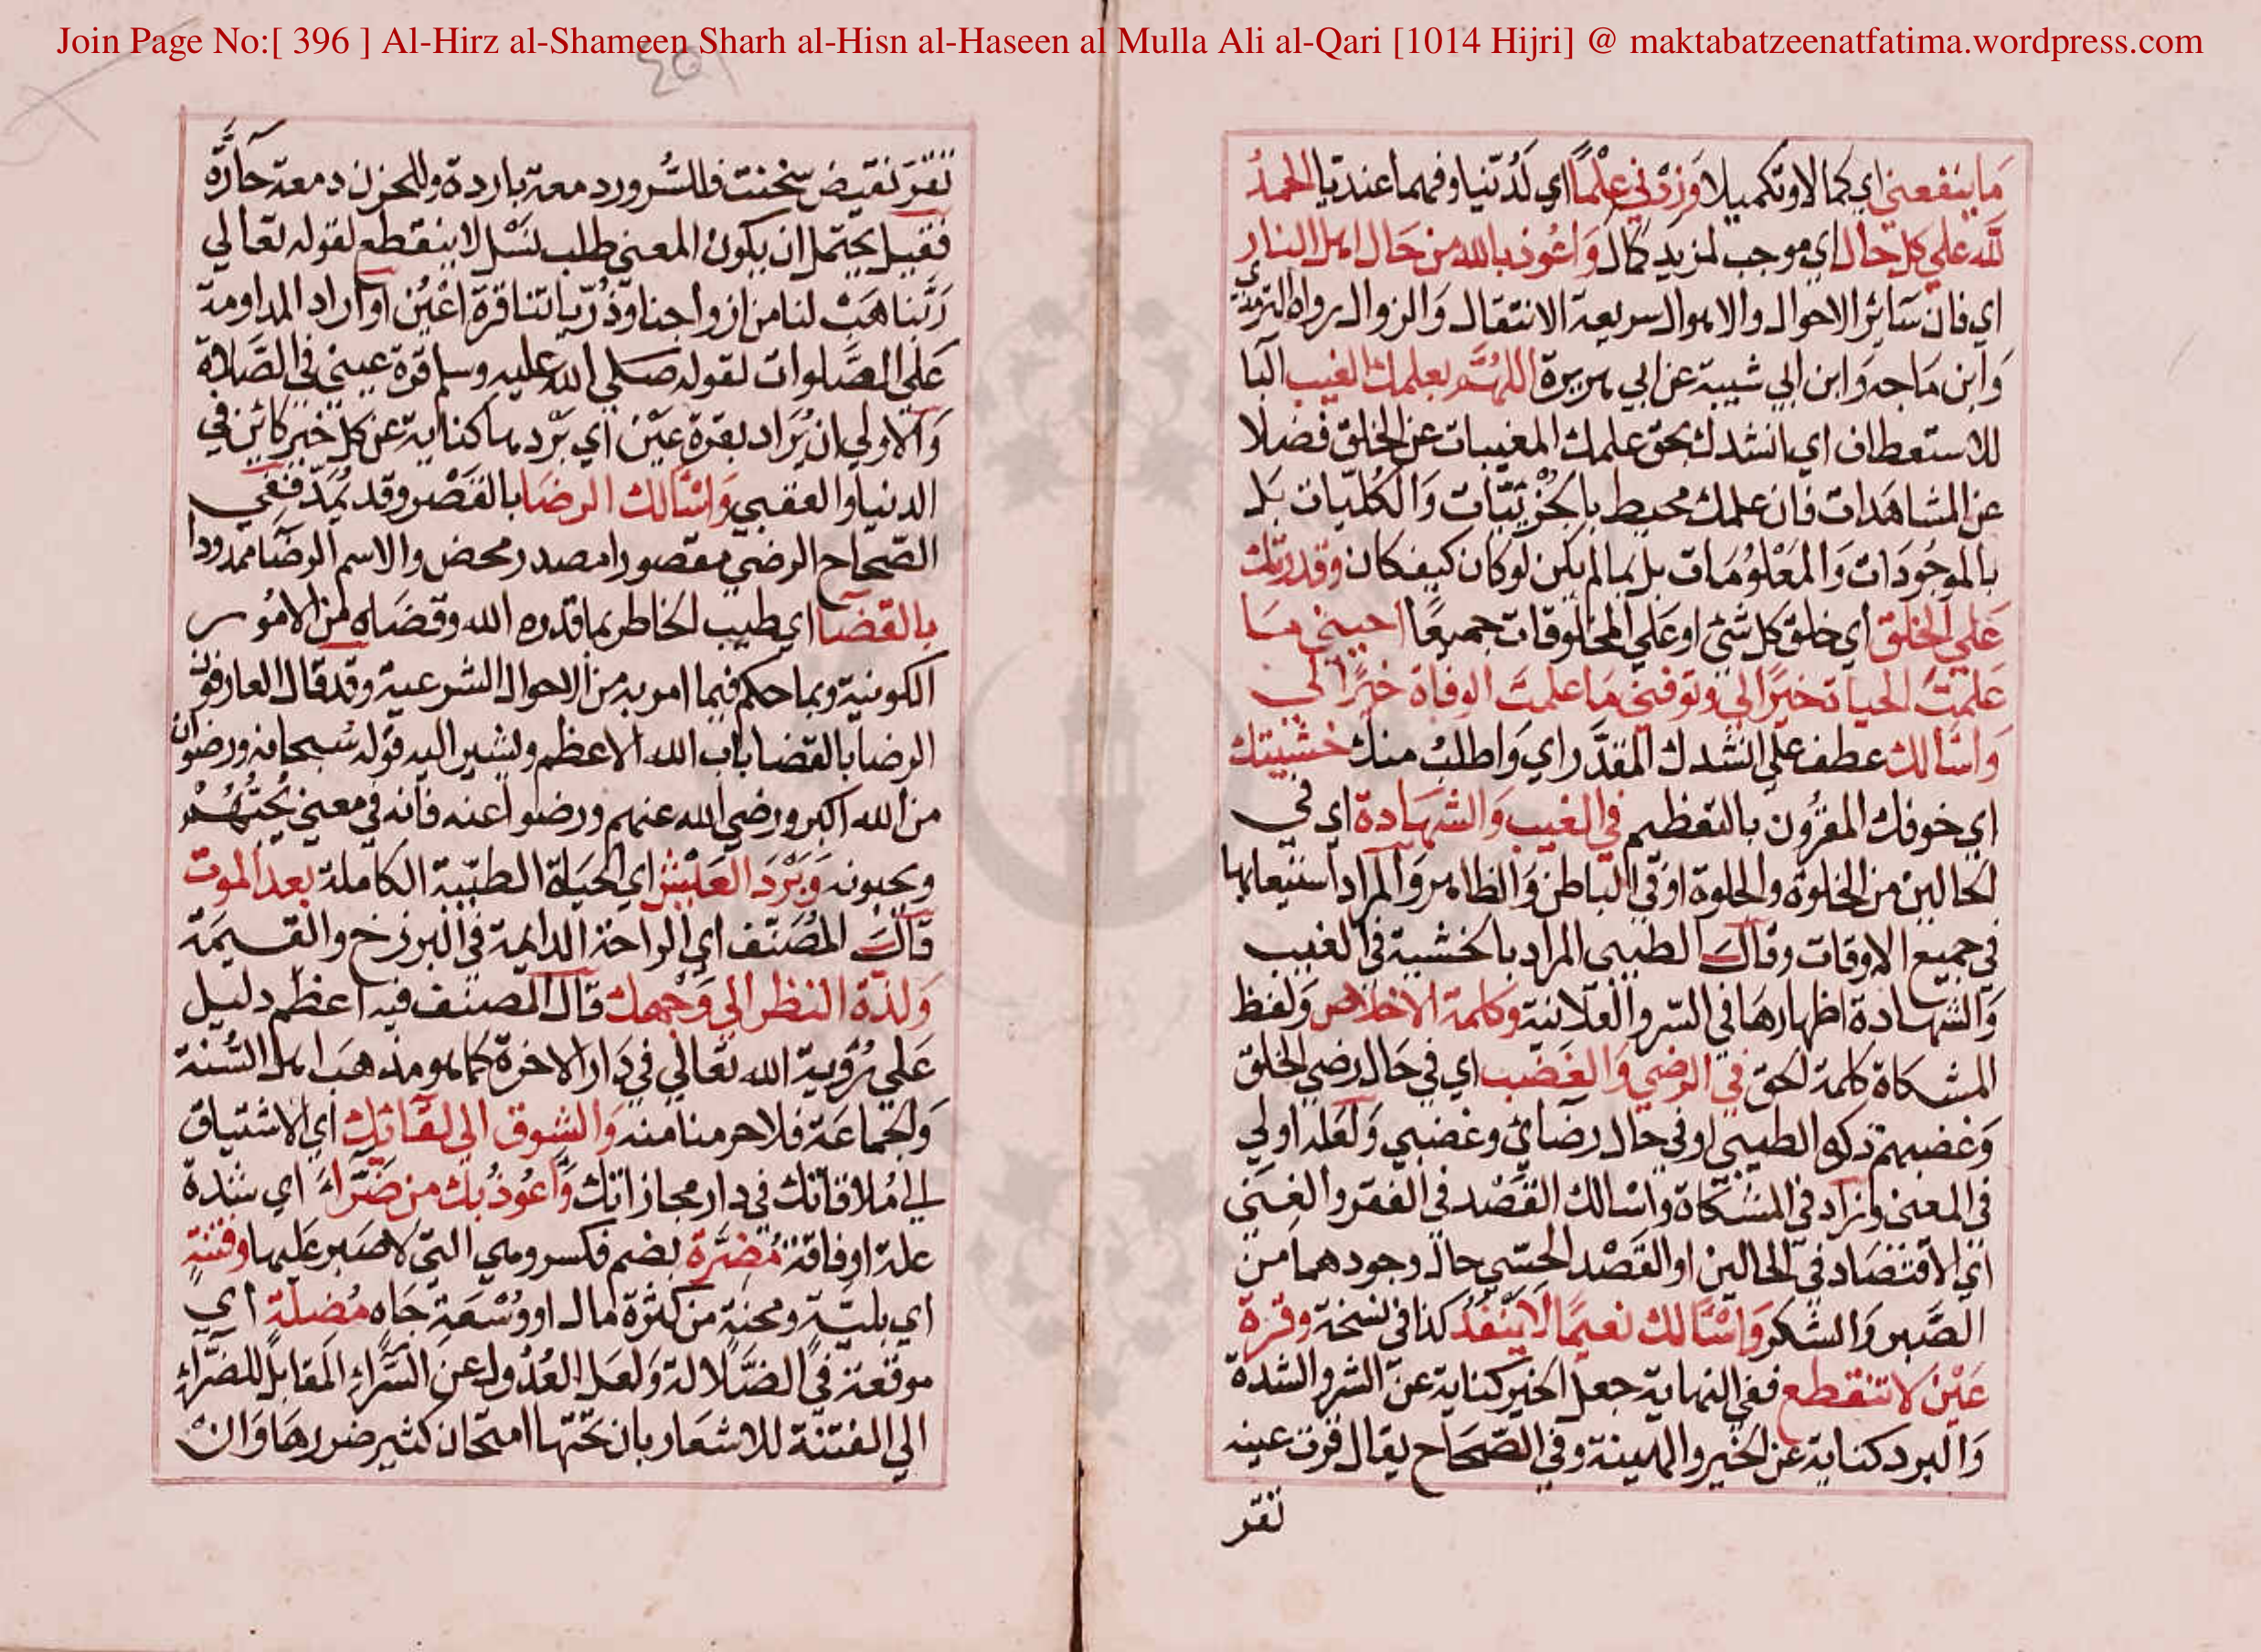 Join Page No:[ 396 ] Al-Hirz al-Shameen Sharh al-Hisn al-Haseen al Mulla Ali al-Qari [1014 Hijri] @ maktabatzeenatfatima.wordpress.com
ما ينفعني اي كمالا وتكميلا وزدني علما اي لدنيا وفهما عنديا الحمد
لله علي كل حال اي موجب لمزيد كمال واعوذ بالله من حال اهل النار
اي فان سائر الاحوال والاهوال سريعة الانتقال والزوال رواه الترمذي
وابن ماجه وابن ابي شيبة عن ابي هريرة اللهم بعلمك الغيب البا
للاستعطاف اي انشدك بحق علمك المغيبات عن الخلق فضلا
عن المشاهدات فان علمك محيط بالجزئيات والكليات بل
بالموجودات والمعلومات بل بما لم يكن لو كان كيف كان وقدرتك
علي الخلق اي خلق كل شئ او علي المخلوقات جميعا احيني ما
علمت الحياة خيرا لي وتوفني ما علمت الوفاة خيرا لي
واسالك عطف علي انشدك المقدر اي واطلب منك خشيتك
اي خوفك المقرون بالتعظيم في الغيب والشهادة اي في
الحالين من الخلوة والجلوة او في الباطن والظاهر والمراد استيعابها
في جميع الاوقات وقال الطيبي المراد بالخشية في الغيب
والشهادة اظهارها في السر والعلانية وكلمة الاخلاص ولفظ
المشكاة كلمة الحق في الرضي والغضب اي في حال رضي الخلق
وغضبهم ذكره الطيبي او في حال رضائي وغضبي ولعله اولي
في المعني وزاد في المشكاة واسالك القصد في الفقر والغني
اي الاقتصاد في الحالين او القصد الحسي حال وجودهما من
الصبر والشكر واسالك نعيما لا ينفد كذا في نسخة وقرة
عين لا تنقطع ففي النهاية جعل الخير كناية عن الشر والشدة
والبرد كناية عن الخير والهينة وفي الصحاح يقال قرت عينه
تقر
تقر نقيض سخنت فللسرور دمعة باردة وللحزن دمعة حارة
فقيل يحتمل ان يكون المعني طلب نسل لا ينقطع لقوله تعالي
ربنا هب لنا من ازواجنا وذرياتنا قرة اعين او اراد المداومة
علي الصلوات لقوله صلي الله عليه وسلم قرة عيني في الصلاة
والاولي ان يراد بقرة عين اي بردها كناية عن كل خير كائن في
الدنيا والعقبي واسالك الرضا بالقصر وقد يمد ففي
الصحاح الرضي مقصورا مصدر محض والاسم الرضا ممدودا
بالقضا اي طيب الخاطر بما قدره الله وقضاه من الامور
الكونية وبما حكم فيما امر به من الاحوال الشرعية وقد قال العارفون
الرضا بالقضا باب الله الاعظم ويشير اليه قوله سبحانه ورضوان
من الله اكبر ورضي الله عنهم ورضوا عنه فانه في معني يحبهم
ويحبونه وبرد العيش اي الحياة الطيبة الكاملة بعد الموت
قال المصنف اي الراحة الدايمة في البرزخ والقيمة
ولذة النظر الي وجهك قال المصنف فيه اعظم دليل
علي رؤية الله تعالي في دار الاخرة كما هو مذهب اهل السنة
والجماعة فلا حرمنا منه والشوق الي لقائك اي الاشتياق
الي ملاقاتك في دار مجازاتك واعوذ بك من ضراء اي شدة
علة او فاقة مضرة بضم فكسر وهي التي لا صبر عليها وفتنة
اي بلية ومحنة من كثرة مال او وسعة جاه مضلة اي
موقعة في الضلالة ولعل العدول عن السراء المقابل للضراء
الي الفتنة للاشعار بان تحتها امتحان كثير ضررها وان